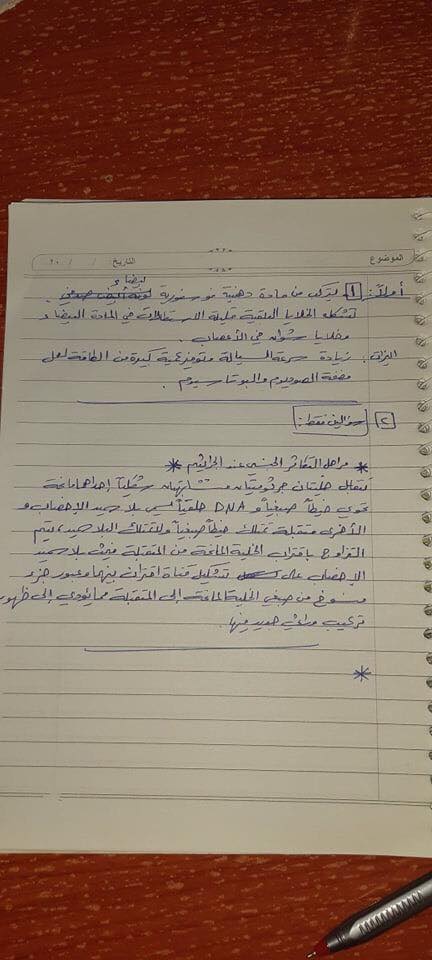 الموضوع التاريخ / / ٢٠
بيضاء
أولاً: 1 تتركب من مادة دهنية فوسفورية
تشكله الخلايا الدبقية قليلة الاستطالات في المادة البيضاء
وخلايا شوان في الأعصاب.
زيادة سرعة السيالة وتوفيز كمية كبيرة من الطاقة لعمل
مضخة الصوديوم والبوتاسيوم.
٢ سؤالين فقط:
* مراحل التكاثر الجنسي عند الجراثيم *
تتقابل خليتان جرثوميتان متشابهتان شكلياً إحداهما مانحة
تحوي خيطاً صبغياً و DNA حلقياً يسمى بلاسميد الإخصاب و
الأخرى متقبلة تمتلك خيطاً صبغياً ولا تمتلك البلاسميد، يتم
التزاوج باقتراب الخلية المانحة من المتقبلة بلاسميد
الإخصاب على تشكيل قناة اقتران بينهما وعبور جزء
منسوخ من صبغي الخلية المانحة إلى المتقبلة مما يؤدي إلى ظهور
تركيب وراثي جديد فيها.
*